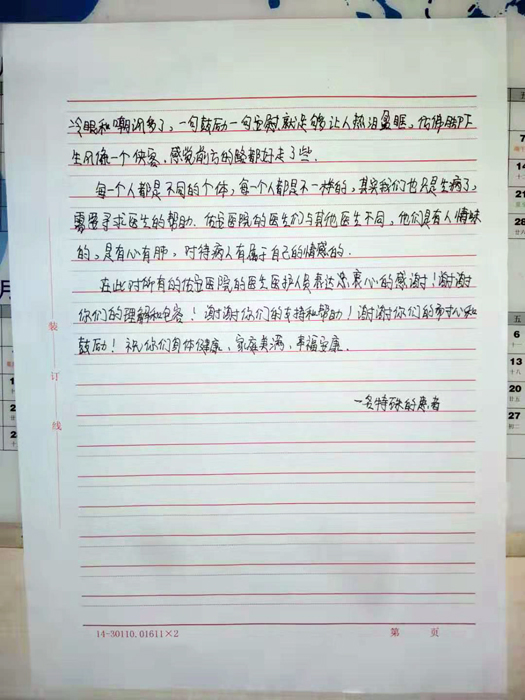 冷眼和嘲讽多了，一句鼓励一句宽慰就足够让人热泪盈眶，仿佛脚下
生风像一个侠客，感觉前方的路都好走了些．
每一个人都是不同的个体，每一个人都是不一样的，其实我们也只是生病了，
需要寻求医生的帮助．佑安医院的医生们与其他医生不同，他们是有人情味
的，是有心有肺，对待病人有属于自己的情感的．
在此对所有的佑安医院的医生医护人员表达一衷心的感谢！谢谢
你们的理解和包容！谢谢你们的支持和帮助！谢谢你们的耐心和
鼓励！祝你们身体健康、家庭美满、幸福安康．
一名特殊的患者
装
订
线
14-30110.01611×2
第 页